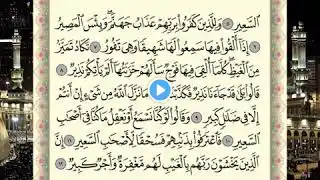 ٱلسَّعِيرِ ۝٥ وَلِلَّذِينَ كَفَرُوا۟ بِرَبِّهِمْ عَذَابُ جَهَنَّمَ ۖ وَبِئْسَ ٱلْمَصِيرُ
۝٦ إِذَآ أُلْقُوا۟ فِيهَا سَمِعُوا۟ لَهَا شَهِيقًا وَهِىَ تَفُورُ ۝٧ تَكَادُ تَمَيَّزُ
مِنَ ٱلْغَيْظِ ۖ كُلَّمَآ أُلْقِىَ فِيهَا فَوْجٌ سَأَلَهُمْ خَزَنَتُهَآ أَلَمْ يَأْتِكُمْ نَذِيرٌ ۝٨
قَالُوا۟ بَلَىٰ قَدْ جَآءَنَا نَذِيرٌ فَكَذَّبْنَا وَقُلْنَا مَا نَزَّلَ ٱللَّهُ مِن شَىْءٍ إِنْ أَنتُمْ
إِلَّا فِى ضَلَٰلٍ كَبِيرٍ ۝٩ وَقَالُوا۟ لَوْ كُنَّا نَسْمَعُ أَوْ نَعْقِلُ مَا كُنَّا فِىٓ أَصْحَٰبِ
ٱلسَّعِيرِ ۝١٠ فَٱعْتَرَفُوا۟ بِذَنۢبِهِمْ فَسُحْقًا لِّأَصْحَٰبِ ٱلسَّعِيرِ ۝١١ إِنَّ
ٱلَّذِينَ يَخْشَوْنَ رَبَّهُم بِٱلْغَيْبِ لَهُم مَّغْفِرَةٌ وَأَجْرٌ كَبِيرٌ ۝١٢